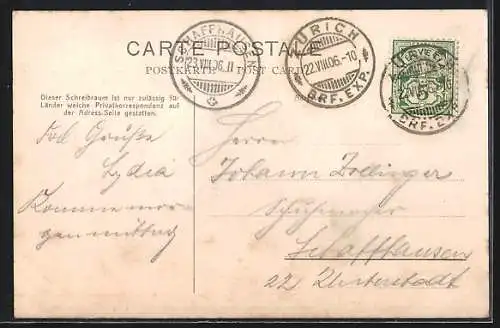 CARTE POSTALE
POSTKARTE POST CARD
SCHAFFHAUSEN
23.VIII.06.II
ZÜRICH
22.VIII.06.-10
BRF. EXP.
5
BRF. EXP.
Dieser Schreibraum ist nur zulässig für
Länder welche Privatkorrespondenz auf
der Adress-Seite gestatten.
Grüße
Lydia
Komme mor-
gen mittag
Herrn
Johann Zollinger
Schuhmacher
Schaffhausen
22 Unterstadt